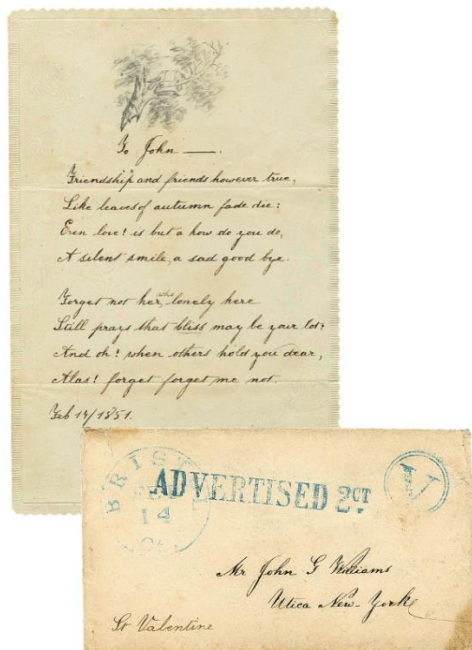 To John —.
Friendship and friends however true,
Like leaves of autumn fade die:
Even love! is but a how do you do,
A silent smile, a sad good bye.
Forget not her, that lonely here
Still prays that bliss may be your lot?
And oh! when others hold you dear,
Alas! forget forget me not.
Feb 14/1851.
BRIST
14
ADVERTISED 2CT
V
Mr John G Williams
Utica New-York
St Valentine